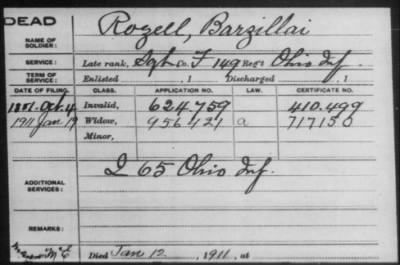 DEAD
NAME OF SOLDIER: Rozell, Barzillai
SERVICE: Late rank, Sgt Co. F, 149 Reg't Ohio Inf.
TERM OF SERVICE: Enlisted , 1 Discharged , 1
DATE OF FILING. CLASS. APPLICATION NO. LAW. CERTIFICATE NO.
Oct. 4 Invalid, 624.759 410.499
1911 Jan. 19 Widow, 956421 a 717150
Minor,
ADDITIONAL SERVICES: I 65 Ohio Inf.
REMARKS:
Died Jan 12, 1911, at